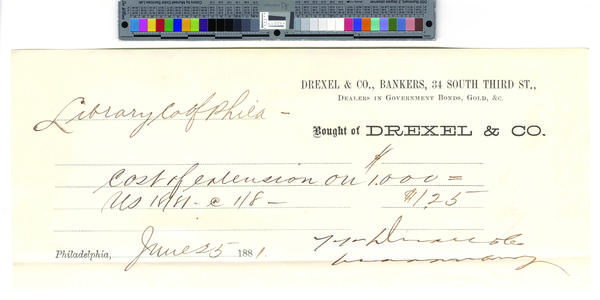 DREXEL & CO., BANKERS, 34 SOUTH THIRD ST.,
DEALERS IN GOVERNMENT BONDS, GOLD, &C.
Library Co of Phila -
Bought of DREXEL & CO.
Cost of extension on $1.000 =
US 1881 - @ 1/8 - $1.25
Philadelphia, June 25 1881.